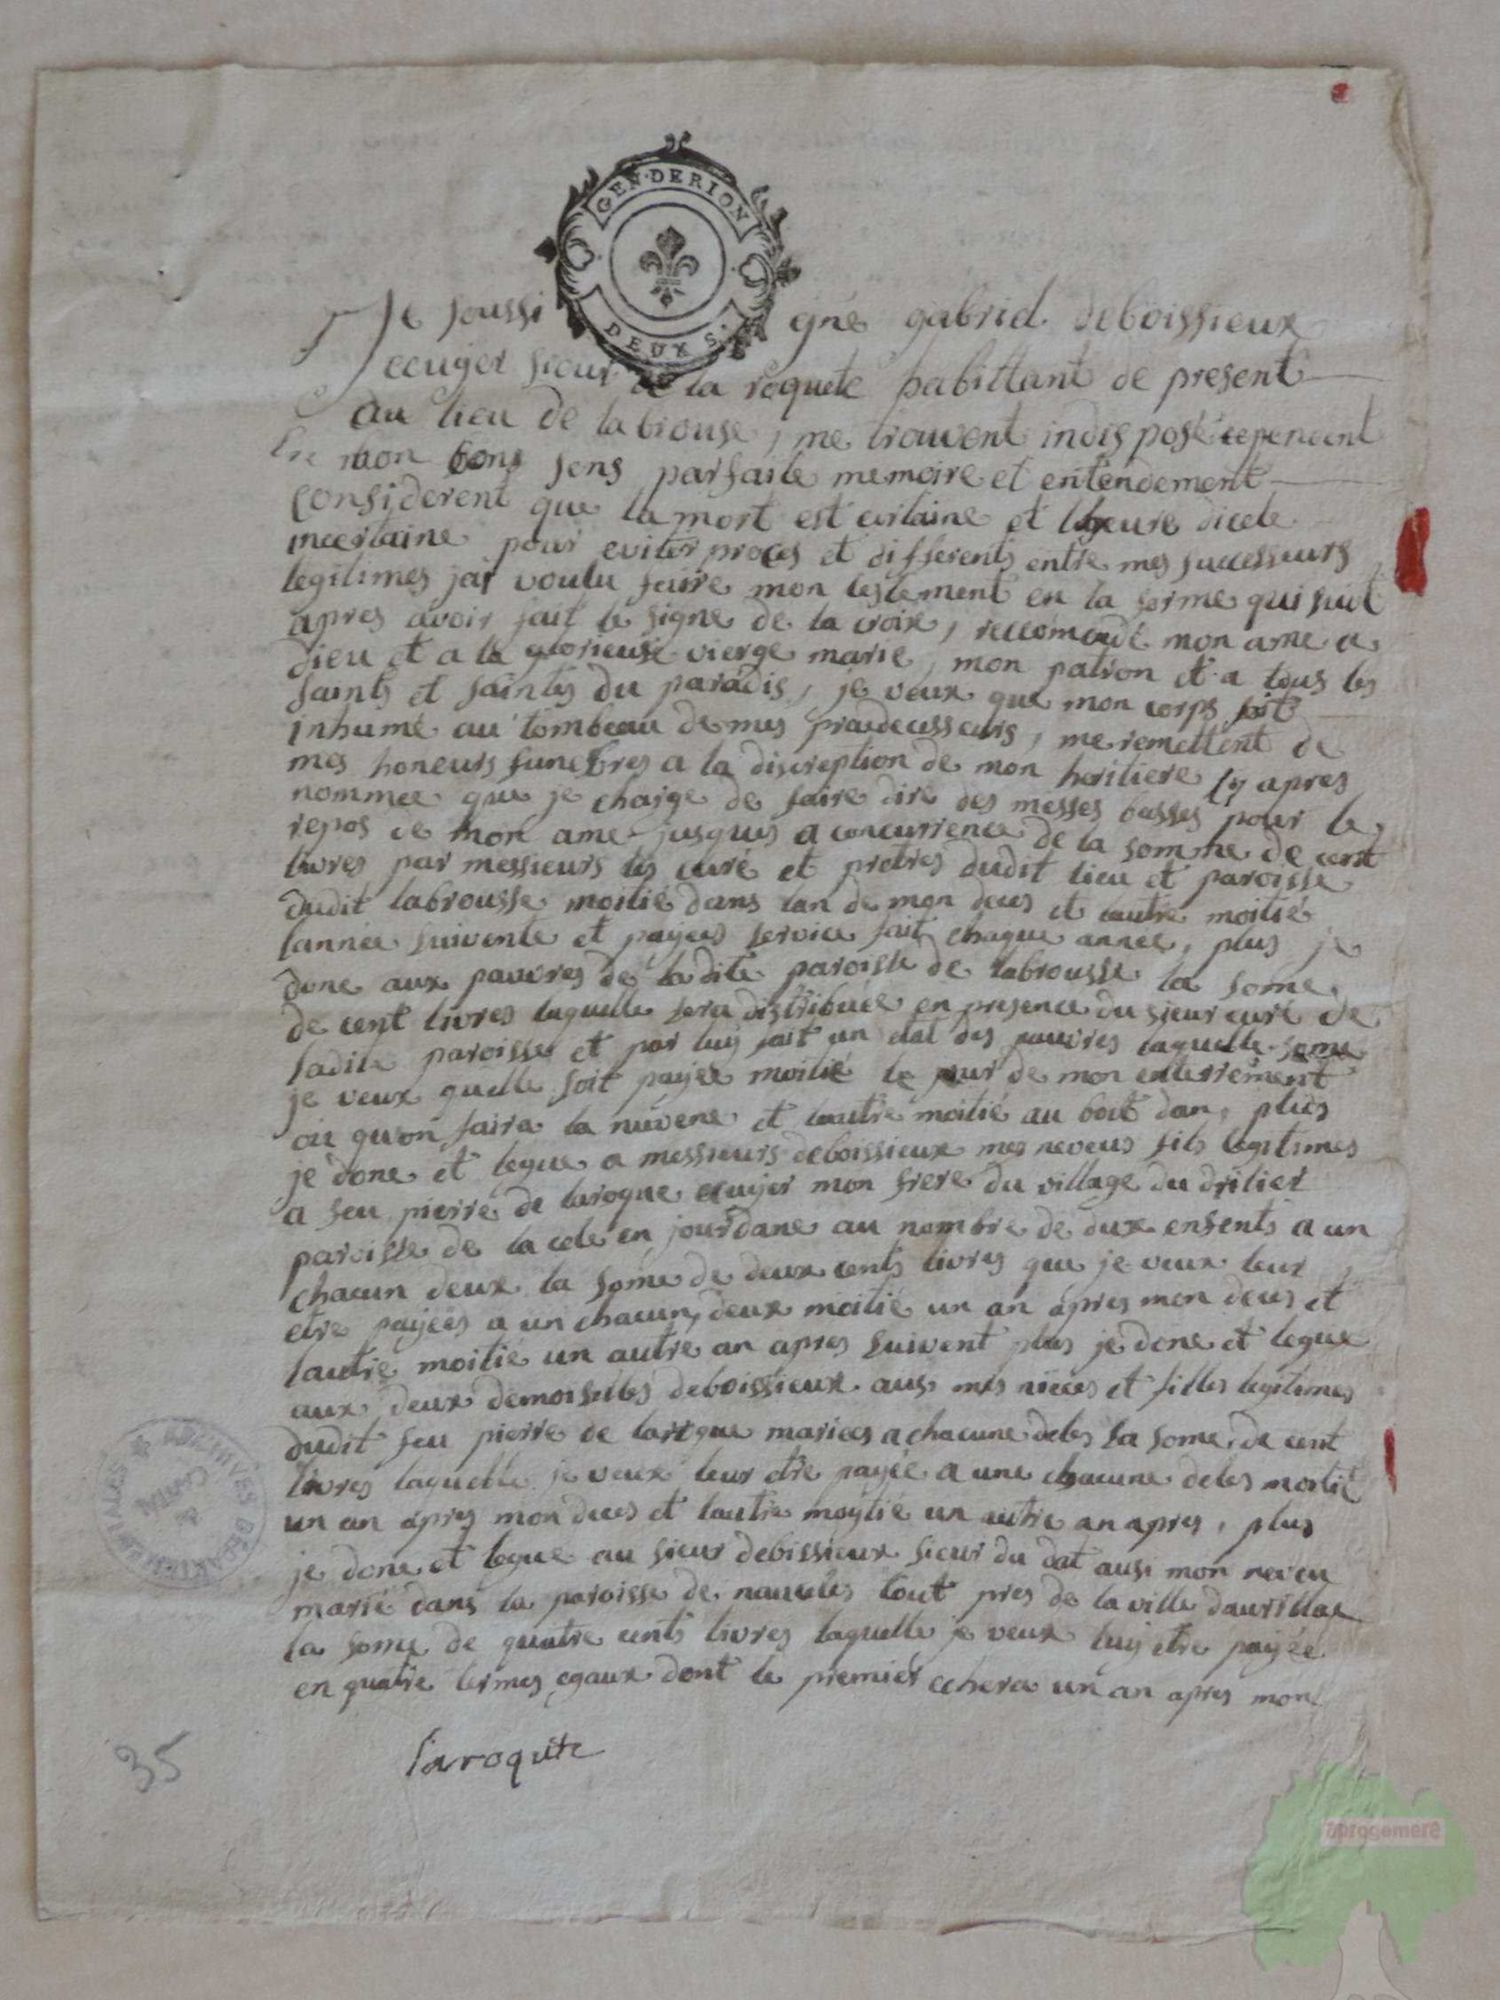 GEN·DERION
DEUX S.
Je soussigné gabriel deboissieux
ecuyer sieur de la roquete habittant de present
au lieu de labrousse, me trouvent indisposé cependent
En mon bons sens parfaite memoire et entendement
considerent que la mort est certaine et lheure dicele
incertaine pour eviter proces et differents entre mes successeurs
legitimes jai voulu faire mon testement en la forme qui suit
apres avoir fait le signe de la croix, reccomendé mon ame a
dieu et a la glorieuse vierge marie, mon patron et a tous les
saints et saintes du paradis, je veux que mon corps soit
inhumé au tombeau de mes praedecesseurs, me remettent de
mes honeurs funebres a la discreption de mon heritiere cy apres
nommee que je charge de faire dire des messes basses pour le
repos de mon ame jusques a concurrence de la somme de cent
livres par messieurs les curé et pretres dudit lieu et paroisse
dudit labrousse moitié dans lan de mon deces et lautre moitié
lannée suivente et payées service fait chaque annee, plus je
done aux pauvres de ladite paroisse de labrousse la some
de cent livres laquelle sera distribuée en presence du sieur curé de
ladite paroisse et par luy fait un etat des pauvres laquelle some
je veux quelle soit payée moitié le jour de mon enterrement
ou quon faira la nuvene et lautre moitié au bout dan, plus
je done et legue a messieurs deboissieux mes neveus fils legitimes
a feu pierre de laroque ecuyer mon frere du village du drilier
paroisse de lacele en jourdane au nombre de dux enfents a un
chacun deux la some de deux cents livres que je veux leur
etre payées a un chacun deux moitié un an apres mon deces et
lautre moitié un autre an apres suivent plus je done et legue
aux deux demoiselles deboissieux ausi mes nieces et filles legitimes
dudit feu pierre de laroque mariees a chacune deles la some de cent
livres laquelle je veux leur etre payée a une chacune deles moitié
un an apres mon deces et lautre moytié un autre an apres, plus
je done et legue au sieur debissieux sieur du dat ausi mon neveu
marié dans la paroisse de naucles tout pres de la ville daurillac
la some de quatre cents livres laquelle je veux luy etre payée
en quatre termes egaux dont le premier echera un an apres mon
laroquete
35
ARCHIVES DÉPARTEMENTALES
CANTAL
aprogemere